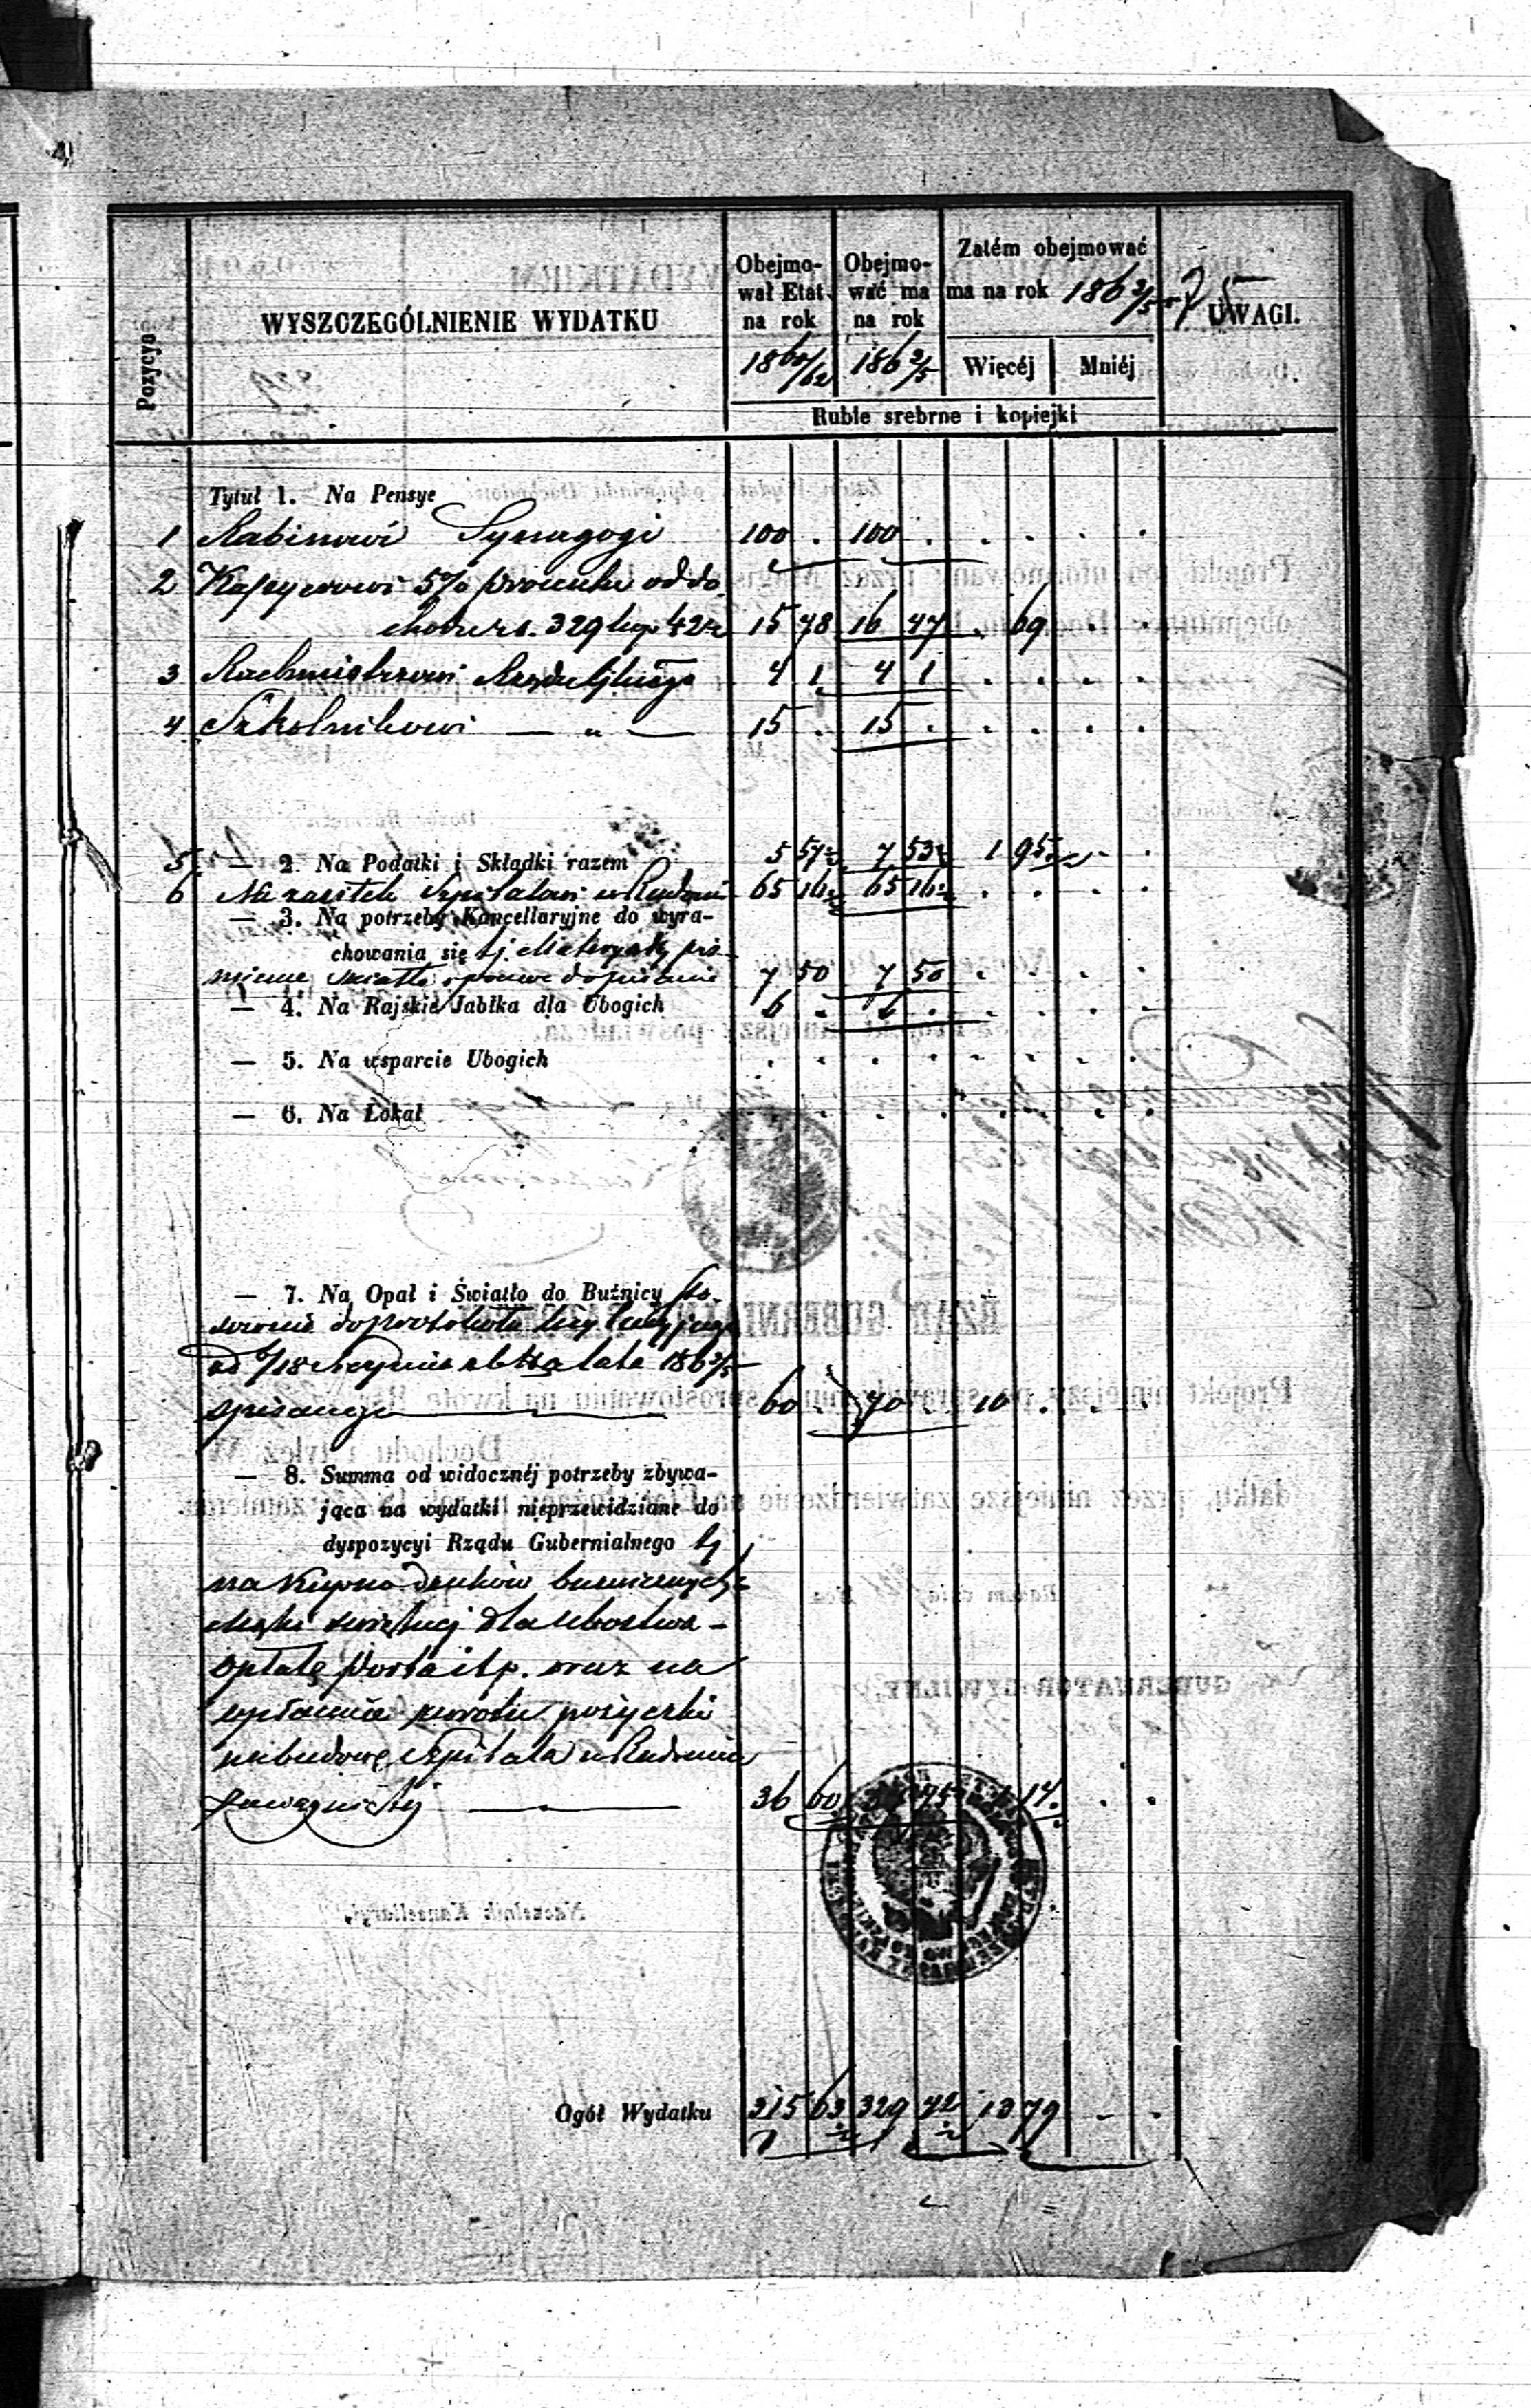 Pozycya
WYSZCZEGÓLNIENIE WYDATKU
Obejmo-
wał Etat
na rok
18 60/62
Obejmo-
wać ma
na rok
186 3/5
Zatém obejmować
ma na rok 186 3/5
Więcéj
Mniéj
UWAGI.
Ruble srebrne i kopiejki
Tytuł 1. Na Pensye
1 Rabinowi Synagogi 100 . 100 . . . . .
2 Kassyerowi 5% procentu od do
chodu rs. 329 kop 42½ 15 78 16 47 . 69 . .
3 Rachmistrzowi 4 1 4 1 . . . .
4 Szkolnikowi — „ — 15 . 15 . . . . .
5 — 2. Na Podatki i Składki razem 5 57½ 7 53½ 1 95 . .
6 Na zasiłek Szpitalowi w Radomiu 65 16½ 65 16½ . . . .
— 3. Na potrzeby Kancellaryjne do wyra-
chowania się tj. Materyały piś-
mienne światło oprawe 7 50 7 50 . . . .
— 4. Na Rajskie Jabłka dla Ubogich 6 . 6 . . . . .
— 5. Na wsparcie Ubogich . . . . . . . .
— 6. Na Lokal . . . . . . . .
— 7. Na Opał i Światło do Buźnicy sto-
sownie do protokułu licytacyjnego
od 6/18 na lata 186 3/5
spisanego — 60 . 70 . 10 . . .
— 8. Summa od widocznéj potrzeby zbywa-
jąca na wydatki nieprzewidziane do
dyspozycyi Rządu Gubernialnego tj
na kupno druków
Mąki dla ubóstwa —
opłatę porta itp. oraz na
zwrotu pożyczki
na budowę Szpitala w Radomiu
36 60 75 14 . .
Ogół Wydatku 315 63½ 329 42½ 13 79 - .